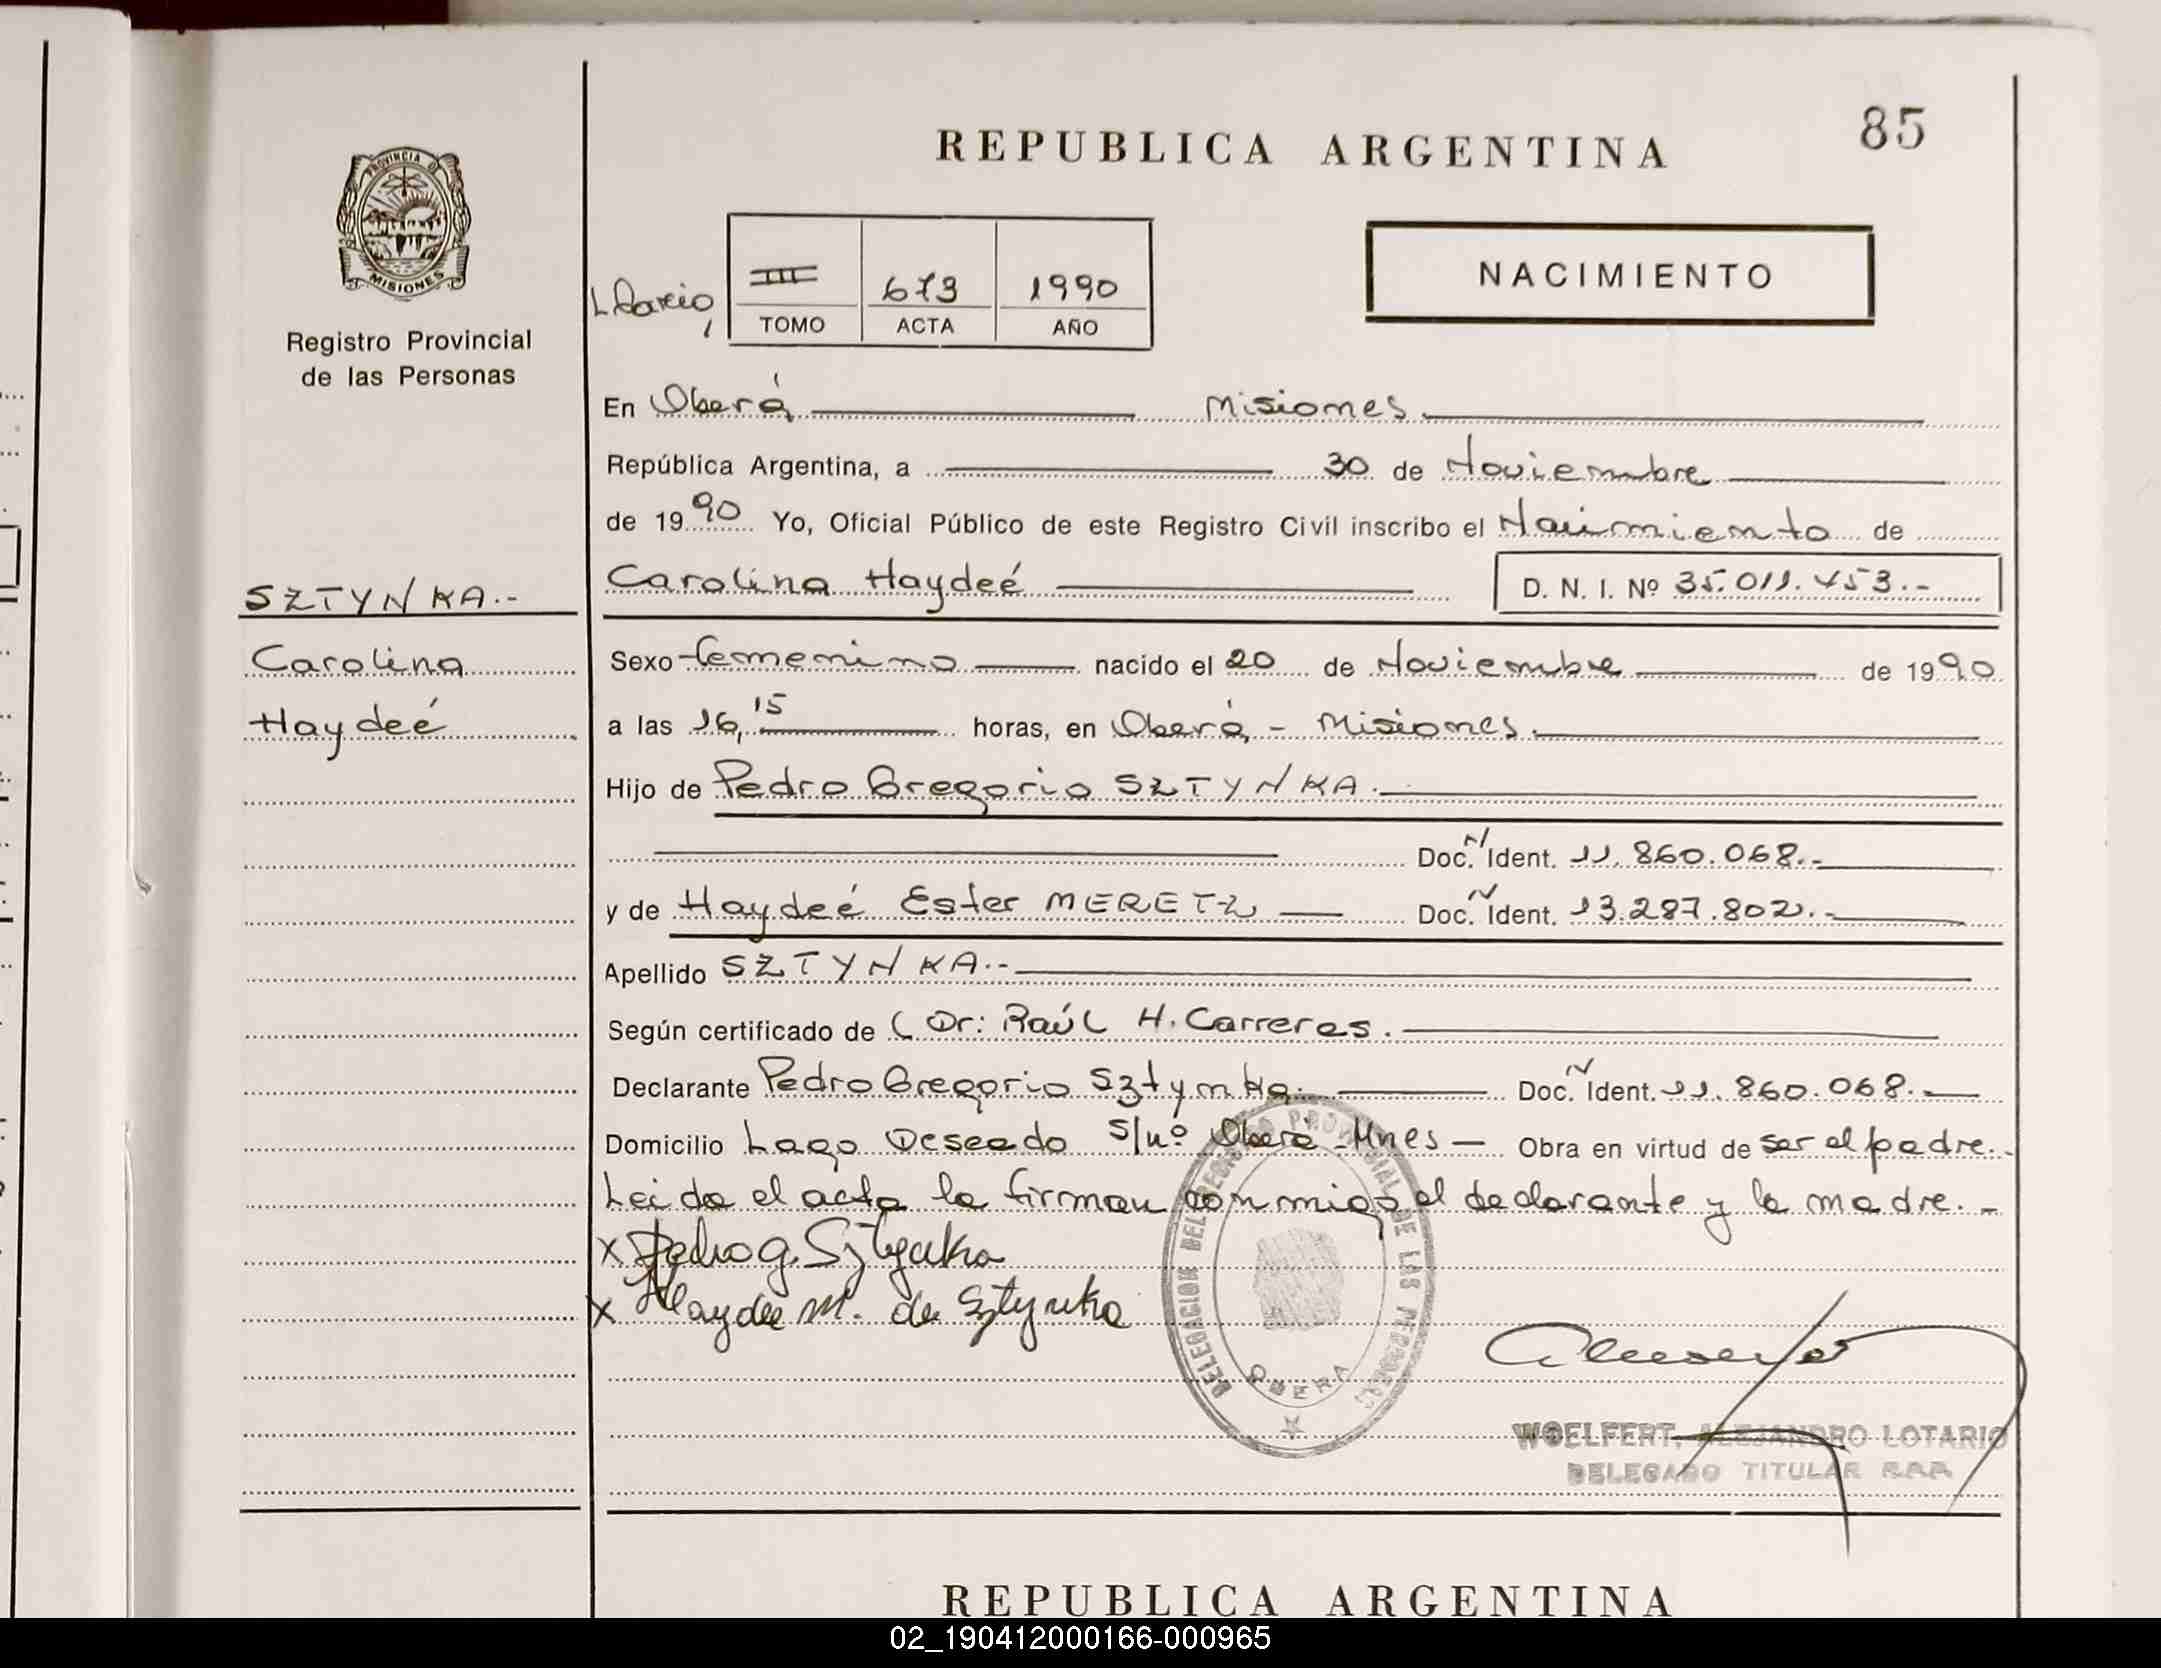 85
REPUBLICA ARGENTINA
PROVINCIA DE
MISIONES
Registro Provincial
de las Personas
III 673 1990
TOMO ACTA AÑO
NACIMIENTO
En Oberá Misiones
República Argentina, a 30 de Noviembre
de 1990 Yo, Oficial Público de este Registro Civil inscribo el Nacimiento de
Carolina Haydeé D. N. I. Nº 35.011.453.-
SZTYNKA.-
Carolina
Haydeé
Sexo femenino nacido el 20 de Noviembre de 1990
a las 16,15 horas, en Oberá - Misiones.
Hijo de Pedro Gregorio SZTYNKA.
Doc. N Ident. 11.860.068.-
y de Haydeé Ester MERETZ Doc. N Ident. 13.287.802.-
Apellido SZTYNKA.-
Según certificado de ( Dr: Raúl H. Carreras.
Declarante Pedro Gregorio Sztynka. Doc. N Ident. 11.860.068.-
Domicilio Lago Deseado S/nº Oberá-Mnes - Obra en virtud de ser el padre.-
Leida el acta la firman conmigo el declarante y la madre.-
x Pedro G. Sztynka
x Haydee M. de Sztynka
DELEGACION DEL REGISTRO PROVINCIAL DE LAS PERSONAS
OBERA
WOELFERT, ALEJANDRO LOTARIO
DELEGADO TITULAR R.P.P.
REPUBLICA ARGENTINA
02_190412000166-000965